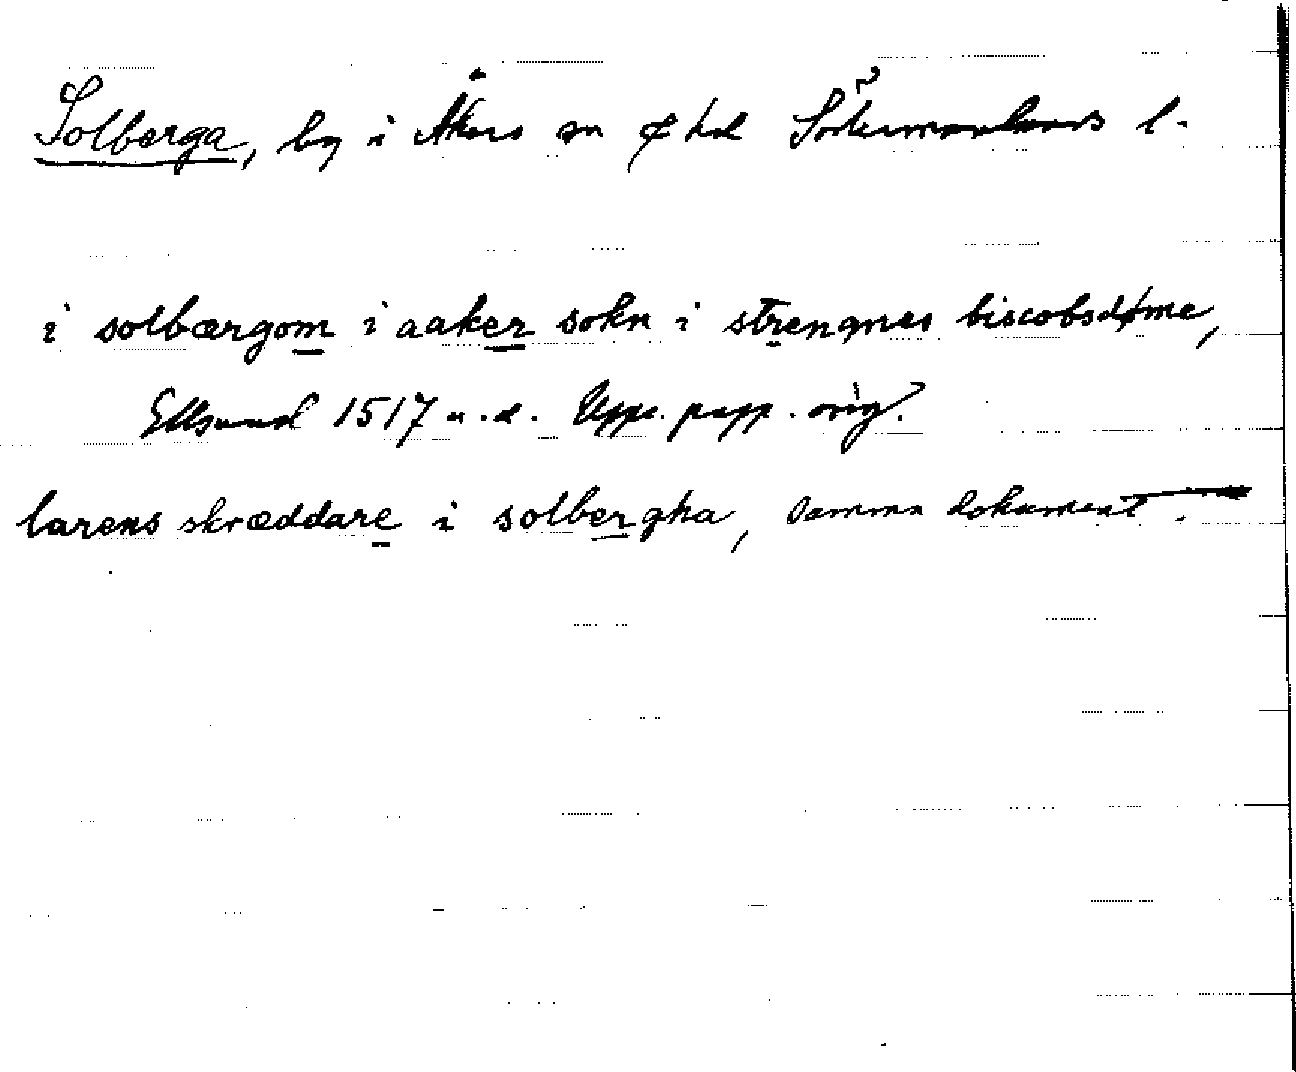 Solberga, by i Åkers sn & hd Södermanlands l.
i solbærgom i aaker sokn i strengnes biscobsdøme,
1517 u. d. Upps. papp. orig.
larens skræddare i solbergha, samma dokument.